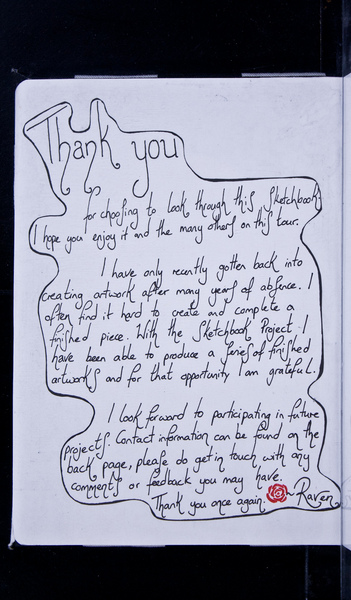 Thank you
for choosing to look through this Sketchbook.
I hope you enjoy it and the many others on this tour.
I have only recently gotten back into
creating artwork after many years of absence. I
often find it hard to create and complete a
finished piece. With the Sketchbook Project I
have been able to produce a series of finished
artworks and for that opportunity I am grateful.
I look forward to participating in future
projects. Contact information can be found on the
back page, please do get in touch with any
comments or feedback you may have.
Thank you once again. Raven